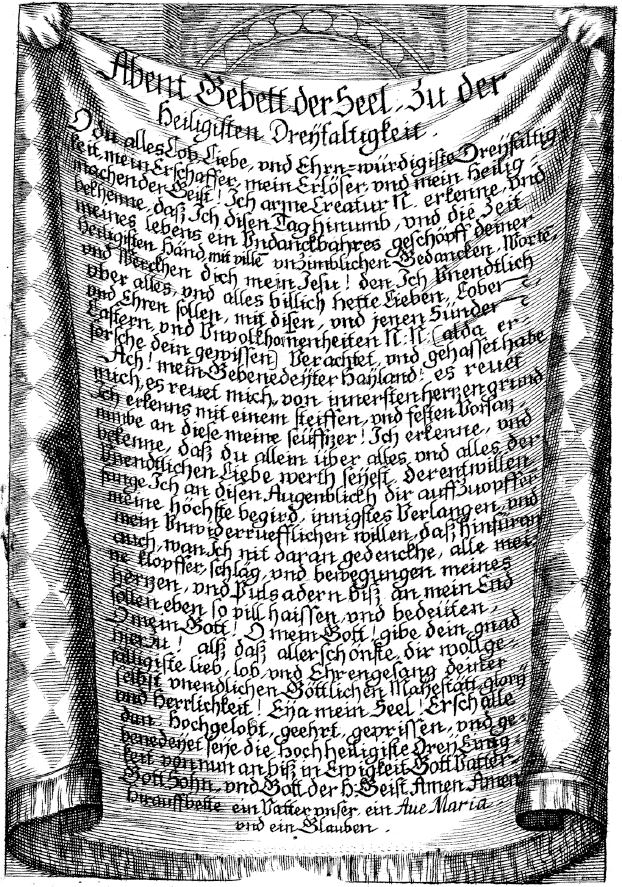 Abent Gebett der Seel. Zu der
Heiligisten Dreyfaltigkeit.
O du alles Lob, Liebe, vnd Ehrn=würdigiste Dreyfaltig=
keit, mein Erschaffer, mein Erlöser, vnd mein Heilig=
machender Geist! Ich arme Creatur N. erkenne, vnd
bekhenne, daß Ich disen Tag hinumb, vnd die Zeit
meines lebens ein Vndanckbahres geschöpff deiner
Heiligisten Händ, mit ville vnzimblichen Gedancken, Worte,
vnd Werckhen dich mein Jesu! den Ich Vnendtlich
vber alles, vnd alles billich hette Lieben, Lober
vnd Ehren sollen, mit disen, vnd jenen Sünder
Lastern, vnd Vnvollkhomenheiten N: N: (alda er=
forsche dein gewissen) Verachtet, vnd gehasset habe
Ach! mein Gebenedeyter Hayland: es reuet
mich, es reuet mich, von innersten herzen grund
Ich erkenns mit einem steiffen, vnd festen Vorsaz,
nimbe an diese meine seüffzer! Ich erkenne, vnd
bekenne, daß du allein über alles, vnd alles der
Vnendtlichen Liebe werth seyest, derentwillen
fange Ich an disen Augenblickh dir auffzuopffer
meine höchste begird, innigstes Verlangen, vnd
mein Vnwiderruefflichen willen, daß hinfüran
auch, wan Ich nit daran gedenckhe, alle mei=
ne klopffer, schläg, vnd bewegungen meines
herzen, vnd Pulsadern biß an mein End
sollen eben so vill haissen, vnd bedeüten,
O mein Gott! O mein Gott! gibe dein gnad
hierzu! alß daß allerschönste, dir wollge=
fälligiste lieb, lob, vnd Ehrengesang deiner
selbst vnendlichen Göttlichen Mayestätt, glory
vnd Herrlichkeit! Eya mein Seel! Erschalle
dan: Hochgelobt, geehrt, geprissen, vnd ge=
benedeyet seye die Hochheiligiste DreyEinig=
keit von nun an biß in Ewigkeit Gott Vatter,
Gott Sohn, vnd Gott der H. Geist Amen Amen
Hirauff bette ein Vatter vnser, ein Aue Maria
vnd ein Glauben.